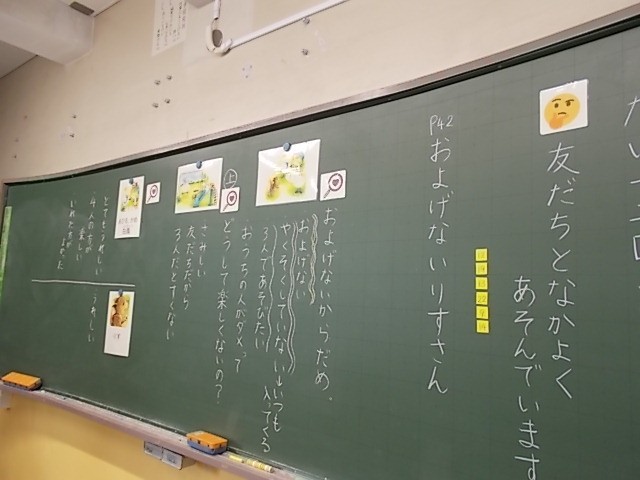 友だちとなかよく
あそんでいます
P42 およげないりすさん
およげないからだめ。
およげない
やくそくしていない→いつも
入ってくる
3人であそびたい
おうちの人がダメって
上
どうして楽しくないの？
さみしい
友だちだから
3人だとすくない
とてもうれしい
4人の方が楽しい
いれた方が
よかった
うれしい